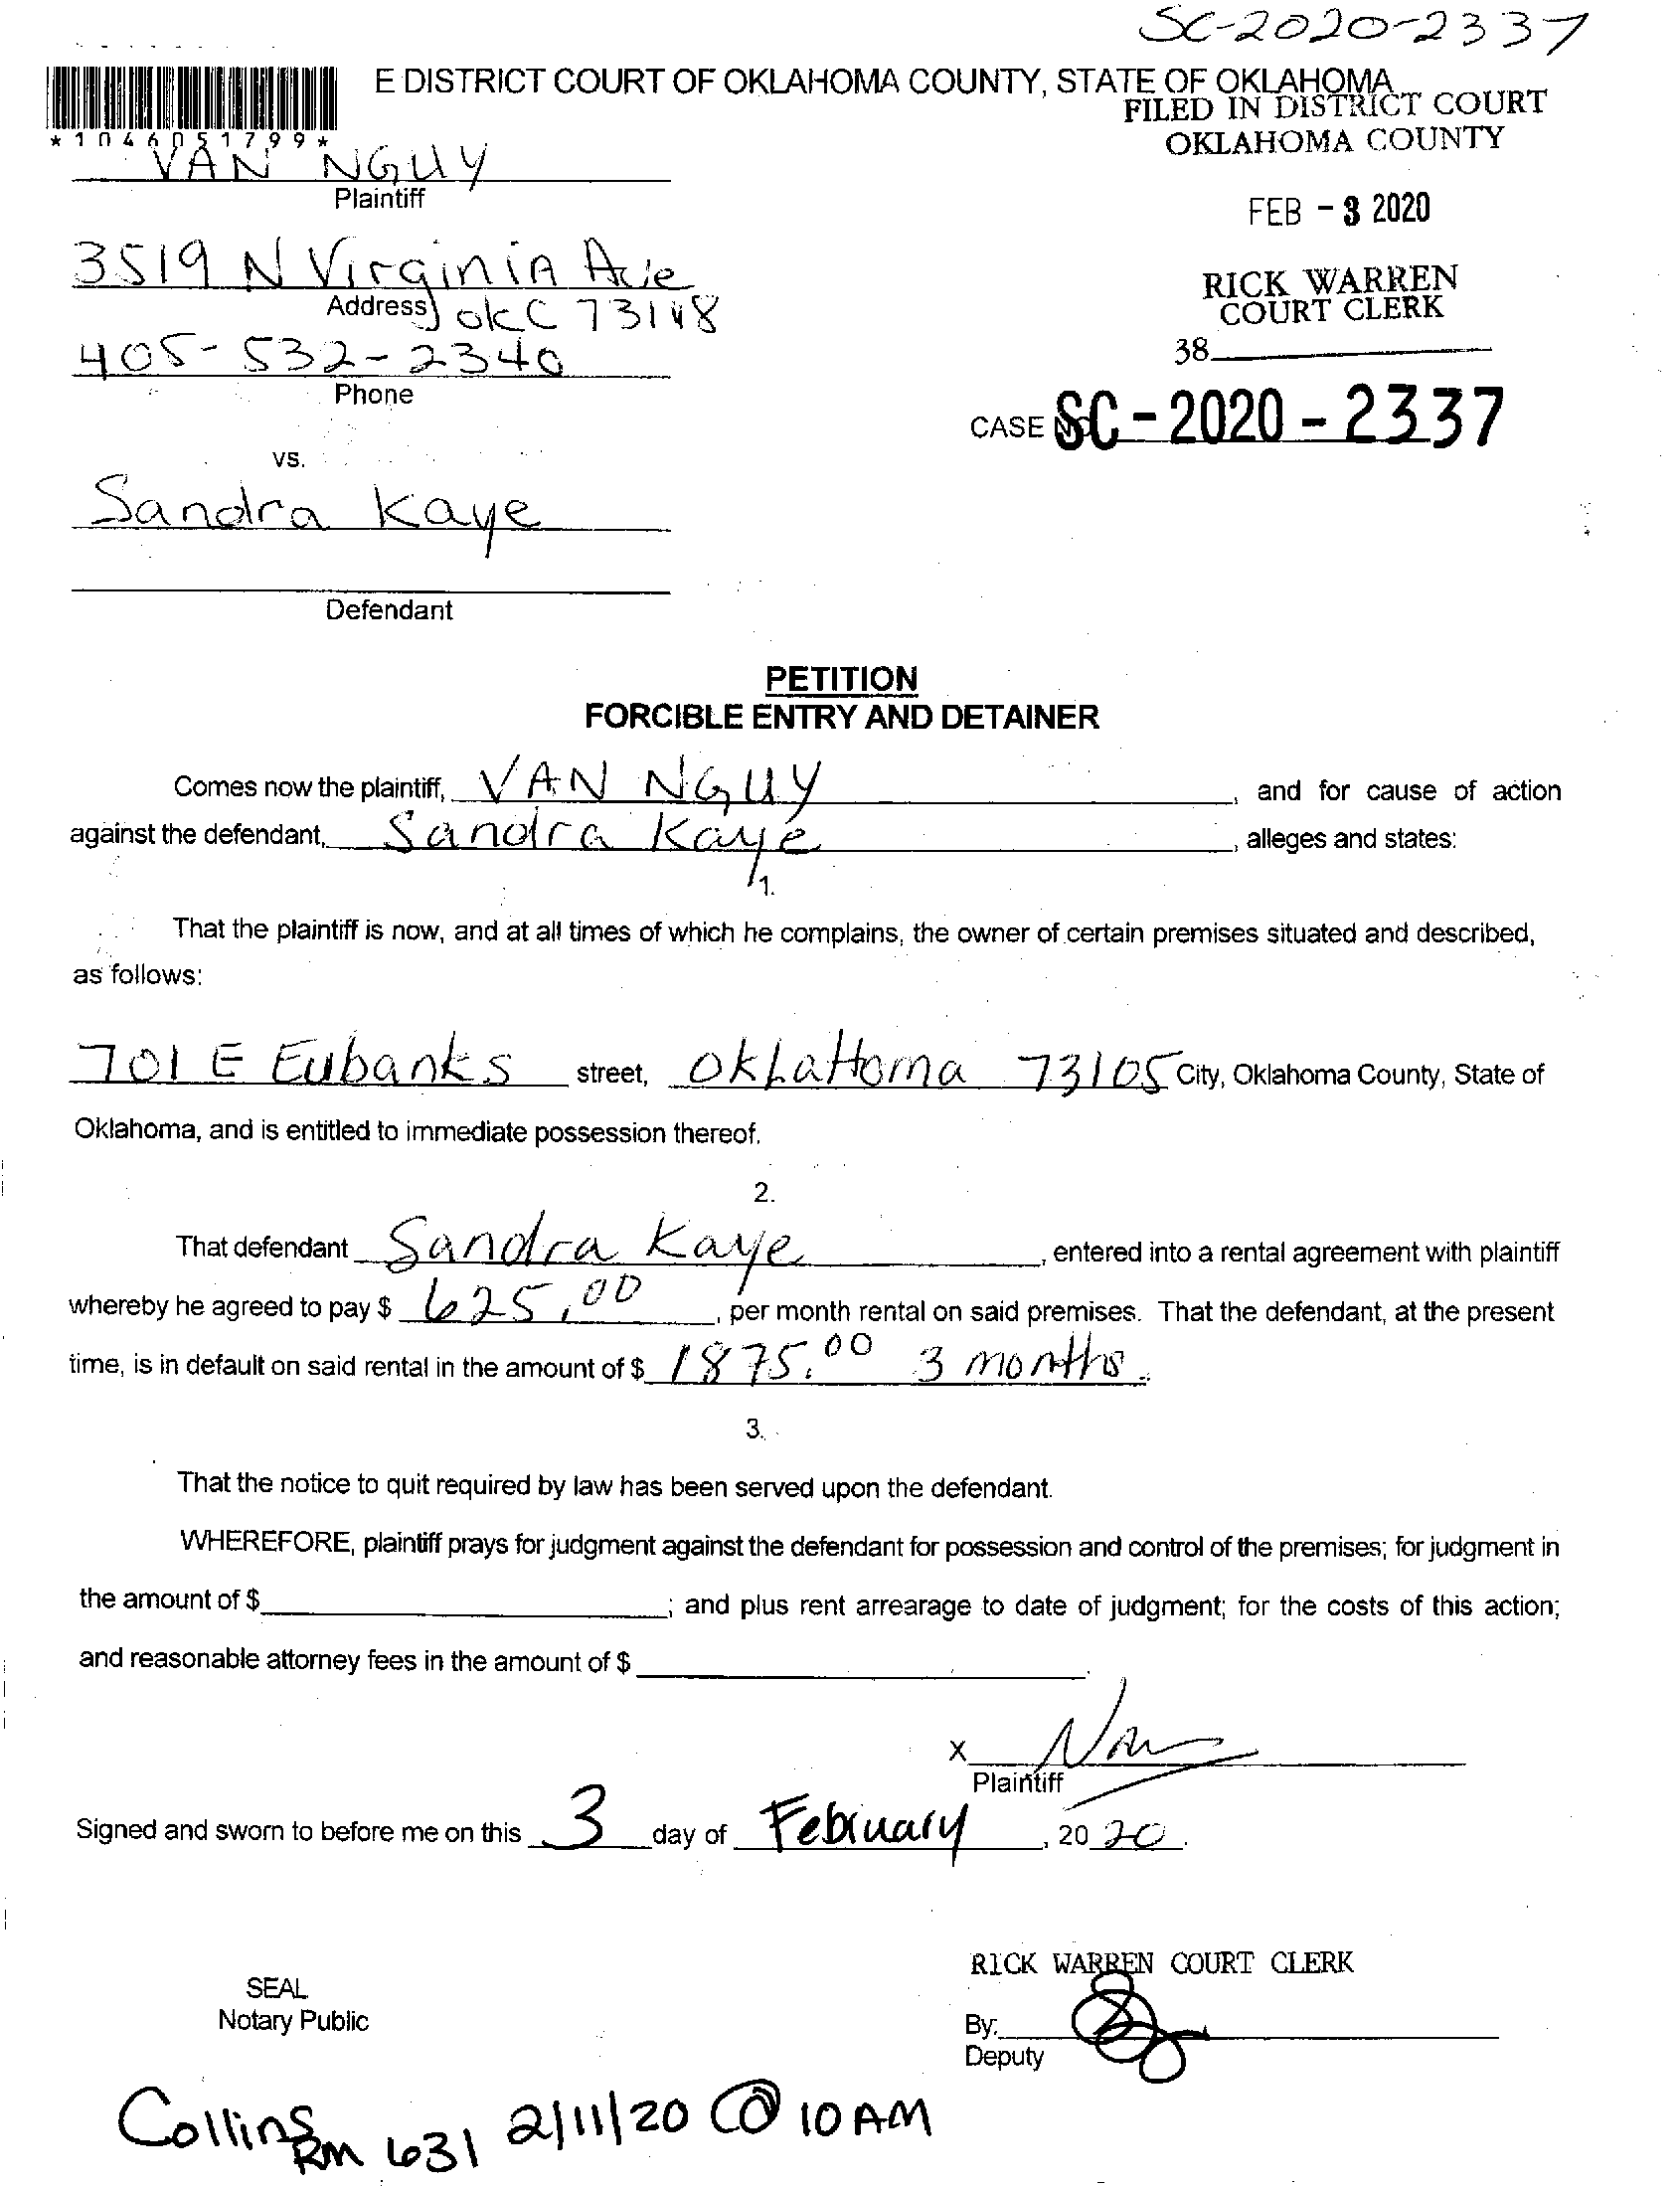 SC-2020-2337
E DISTRICT COURT OF OKLAHOMA COUNTY, STATE OF OKLAHOMA
FILED IN DISTRICT COURT
OKLAHOMA COUNTY
*1046051799*
VAN NGUY
Plaintiff
FEB - 3 2020
3519 N Virginia Ave
Address
OKC 73118
RICK WARREN
COURT CLERK
38
405-532-2340
Phone
CASE NO SC-2020-2337
vs.
Sandra Kaye
Defendant
PETITION
FORCIBLE ENTRY AND DETAINER
Comes now the plaintiff, VAN NGUY, and for cause of action
against the defendant, Sandra Kaye, alleges and states:
1.
That the plaintiff is now, and at all times of which he complains, the owner of certain premises situated and described,
as follows:
701 E Eubanks street, OkLaHoma 73105 City, Oklahoma County, State of
Oklahoma, and is entitled to immediate possession thereof.
2.
That defendant Sandra Kaye, entered into a rental agreement with plaintiff
whereby he agreed to pay $ 625.00, per month rental on said premises. That the defendant, at the present
time, is in default on said rental in the amount of $ 1875.00 3 months.
3.
That the notice to quit required by law has been served upon the defendant.
WHEREFORE, plaintiff prays for judgment against the defendant for possession and control of the premises; for judgment in
the amount of $ ; and plus rent arrearage to date of judgment; for the costs of this action;
and reasonable attorney fees in the amount of $
X
Plaintiff
Signed and sworn to before me on this 3 day of February, 20 20.
RICK WARREN COURT CLERK
SEAL
Notary Public
By:
Deputy
Collins RM 631 2/11/20 @ 10 AM